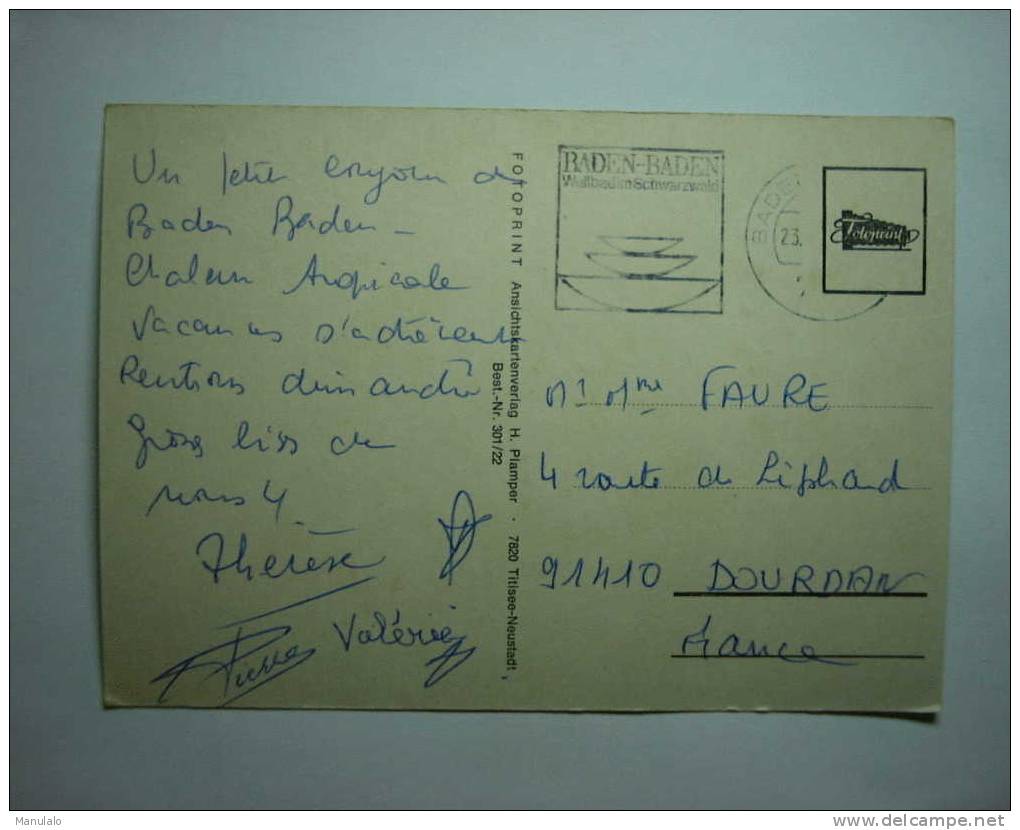 Un petit bonjour de
Baden Baden -
Chaleur tropicale
Vacances s'achèvent
Rentrons dimanche
Gros bises de
nous 4
Thérèse
Valérie
Pierre
FOTOPRINT Ansichtskartenverlag H. Plamper · 7820 Titisee-Neustadt
Best.-Nr. 301/22
BADEN-BADEN
Weltbad im Schwarzwald
BADE
23.
Fotoprint
Mr Mme FAURE
4 route de Liphard
91410 DOURDAN
France
Manulalo
www.delcampe.net